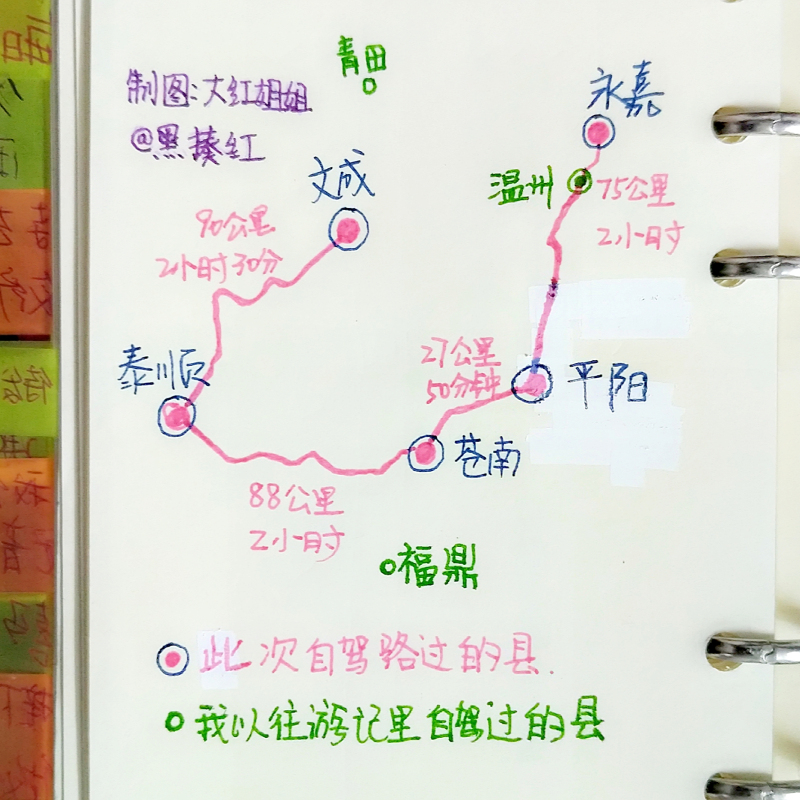 青田
制图:大红姐姐
@黑揍红
永嘉
文成
温州
75公里
2小时
90公里
2小时30分
泰顺
27公里
50分钟
平阳
苍南
88公里
2小时
福鼎
此次自驾路过的县.
我以往游记里自驾过的县